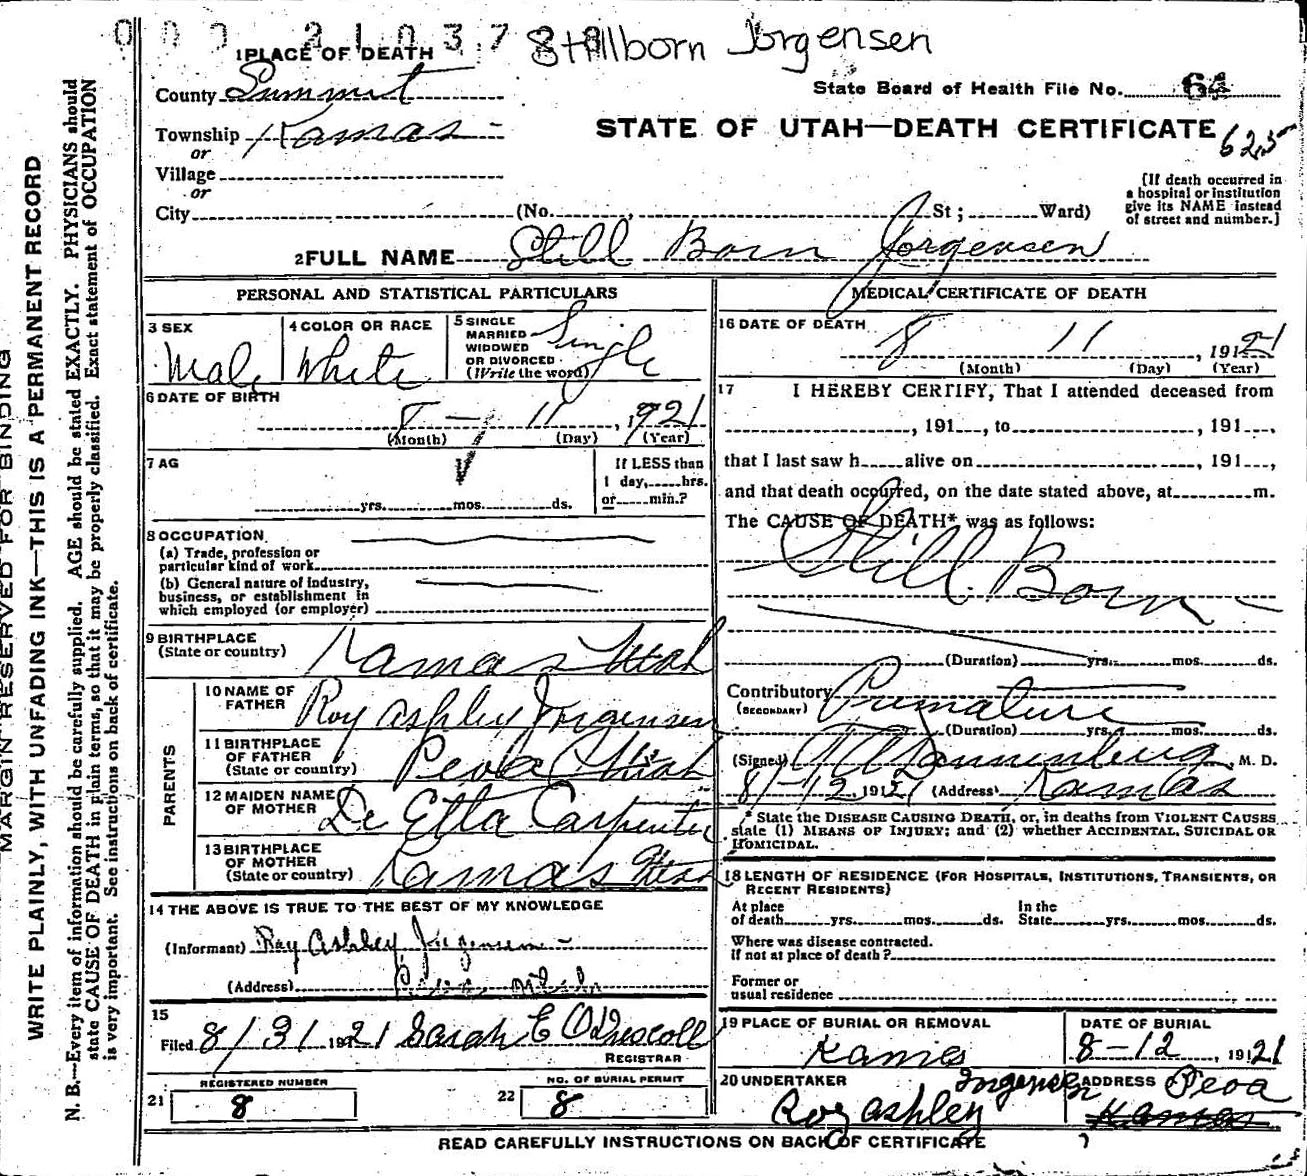 Stillborn Jorgensen
1 PLACE OF DEATH
County Summit
State Board of Health File No. 64
Township Kamas
STATE OF UTAH—DEATH CERTIFICATE
625
or
Village
or
City (No. , St ; Ward)
[If death occurred in
a hospital or institution
give its NAME instead
of street and number.]
2 FULL NAME Still Born Jorgensen
MARGIN RESERVED FOR BINDING
WRITE PLAINLY, WITH UNFADING INK—THIS IS A PERMANENT RECORD
N. B.—Every item of information should be carefully supplied. AGE should be stated EXACTLY. PHYSICIANS should
state CAUSE OF DEATH in plain terms, so that it may be properly classified. Exact statement of OCCUPATION
is very important. See instructions on back of certificate.
PERSONAL AND STATISTICAL PARTICULARS
3 SEX
Male
4 COLOR OR RACE
White
5 SINGLE
MARRIED
WIDOWED
OR DIVORCED
(Write the word)
Single
6 DATE OF BIRTH
8 — 11 , 1921
(Month) (Day) (Year)
7 AG
yrs. mos. ds.
If LESS than
1 day, hrs.
or min.?
8 OCCUPATION
(a) Trade, profession or
particular kind of work
(b) General nature of industry,
business, or establishment in
which employed (or employer)
9 BIRTHPLACE
(State or country)
Kamas Utah
PARENTS
10 NAME OF
FATHER
Roy Ashley Jorgensen
11 BIRTHPLACE
OF FATHER
(State or country)
Peoa Utah
12 MAIDEN NAME
OF MOTHER
De Etta Carpenter
13 BIRTHPLACE
OF MOTHER
(State or country)
Kamas Utah
14 THE ABOVE IS TRUE TO THE BEST OF MY KNOWLEDGE
(Informant) Roy Ashley Jorgensen
(Address) Peoa Utah
15
Filed 8/31 1921 Sarah E O'Driscoll
REGISTRAR
21
REGISTERED NUMBER
8
22
NO. OF BURIAL PERMIT
8
MEDICAL CERTIFICATE OF DEATH
16 DATE OF DEATH
8 11 , 1921
(Month) (Day) (Year)
17 I HEREBY CERTIFY, That I attended deceased from
, 191 , to , 191 ,
that I last saw h alive on , 191 ,
and that death occurred, on the date stated above, at m.
The CAUSE OF DEATH* was as follows:
Still Born
(Duration) yrs. mos. ds.
Contributory Premature
(SECONDARY)
(Duration) yrs. mos. ds.
(Signed) , M. D.
8/-12 1921 (Address) Kamas
* State the DISEASE CAUSING DEATH, or, in deaths from VIOLENT CAUSES
state (1) MEANS OF INJURY; and (2) whether ACCIDENTAL, SUICIDAL OR
HOMICIDAL.
18 LENGTH OF RESIDENCE (FOR HOSPITALS, INSTITUTIONS, TRANSIENTS, OR
RECENT RESIDENTS)
At place
of death yrs. mos. ds.
In the
State yrs. mos. ds.
Where was disease contracted.
if not at place of death?
Former or
usual residence
19 PLACE OF BURIAL OR REMOVAL
Kamas
DATE OF BURIAL
8-12 , 1921
20 UNDERTAKER
Roy Ashley Jorgensen
ADDRESS
Peoa
Kamas
READ CAREFULLY INSTRUCTIONS ON BACK OF CERTIFICATE